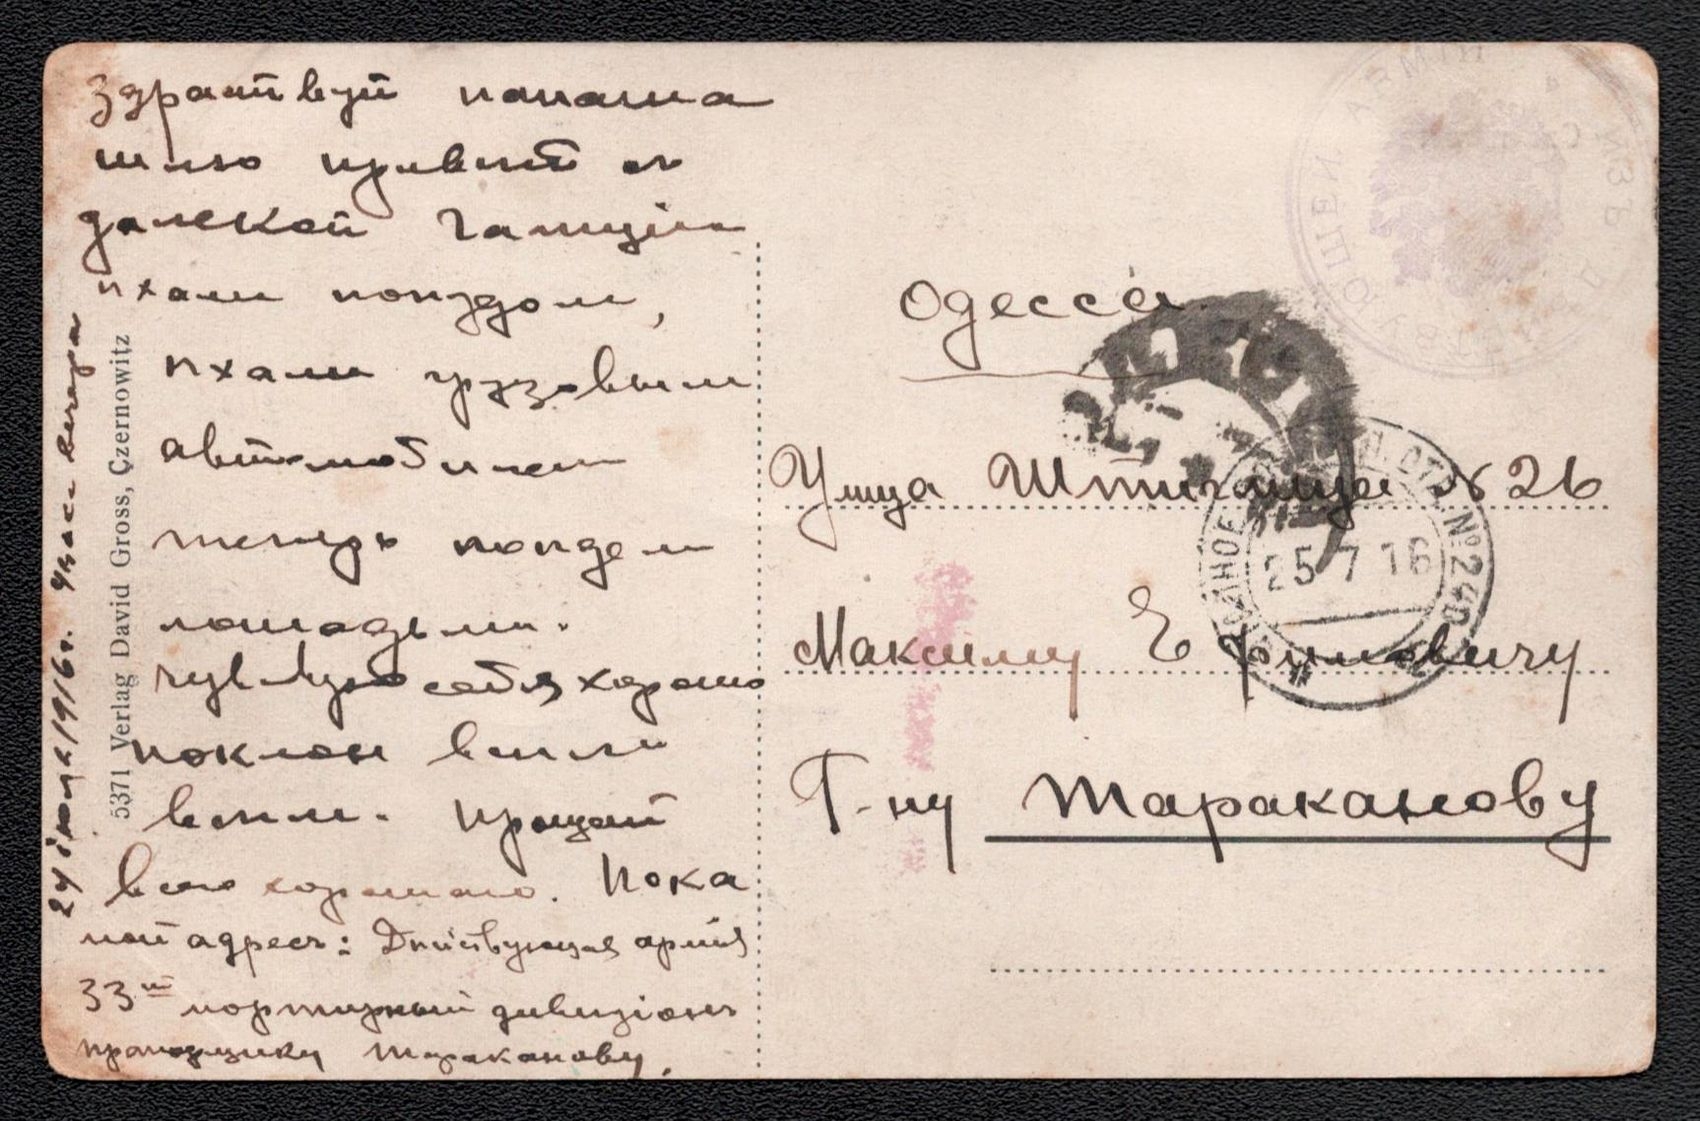 Здраствуй папаша
шлю привет из
далекой Галиціи
ѣхали поѣздом,
ѣхали грузовым
автомобилем
теперь поѣдем
лошадьми.
чувствую себя хорошо
поклон всѣм
всѣм. Прощай
всего хорошаго. Пока
мой адресъ: Дѣйствующая армія
33ій мортирный дивизіонъ
прапорщику Тараканову.
24 іюля 1916 г. 4 час вечера
5371 Verlag David Gross, Czernowitz
Одесса.
Улица Штиглица № 26
Максиму Ефимовичу
Г-ну Тараканову
25 7 16
№ 240
ИЗЪ ДѢЙСТВУЮЩЕЙ АРМІИ